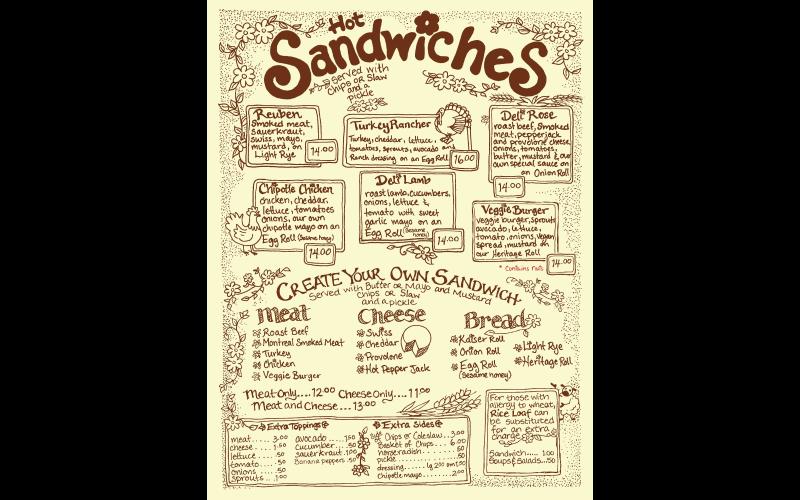 Hot
Sandwiches
served with
Chips or Slaw
and a
pickle
Reuben
Smoked meat,
sauerkraut,
swiss, mayo,
mustard, on
Light Rye
14.00
Turkey Rancher
Turkey, cheddar, lettuce,
tomatoes, sprouts, avocado and
Ranch dressing on an Egg Roll
16.00
Deli Rose
roast beef, Smoked
meat, pepperjack
and provolone cheese,
onions, tomatoes,
butter, mustard & our
own special sauce on
an Onion Roll
14.00
Chipotle Chicken
chicken, cheddar,
lettuce, tomatoes
onions, our own
chipotle mayo on an
Egg Roll (Sesame honey)
14.00
Deli Lamb
roast lamb, cucumbers,
onions, lettuce &
tomato with sweet
garlic mayo on an
Egg Roll (Sesame honey)
14.00
Veggie Burger
veggie burger, sprouts
avocado, lettuce,
tomato, onions, vegan
spread, mustard on
our Heritage Roll
14.00
* Contains nuts
Create Your Own Sandwich
Served with Butter or Mayo and Mustard
Chips or Slaw
and a pickle
Meat
Roast Beef
Montreal Smoked Meat
Turkey
Chicken
Veggie Burger
Cheese
Swiss
Cheddar
Provolone
Hot Pepper Jack
Bread
Kaiser Roll
Onion Roll
Egg Roll
(Sesame honey)
Light Rye
Heritage Roll
Meat Only.... 12.00 Cheese Only.... 11.00
Meat and Cheese ... 13.00
Extra Toppings
meat..... 3.00
cheese.... 1.50
lettuce..... .50
tomato..... .50
onions..... .50
sprouts... 1.00
avocado.... 1.50
cucumber... .50
sauerkraut .1.00
Banana peppers .50
Extra Sides
Chips or Coleslaw.. 3.00
Basket of Chips... 6.00
horseradish..... .50
pickle........ .50
dressing...... lg 2.00 sm 1.00
Chipotle mayo...... 2.00
For those with
allergy to wheat,
Rice Loaf can
be substituted
for an extra
charge
Sandwich..... 1.00
Soups & Salads...50